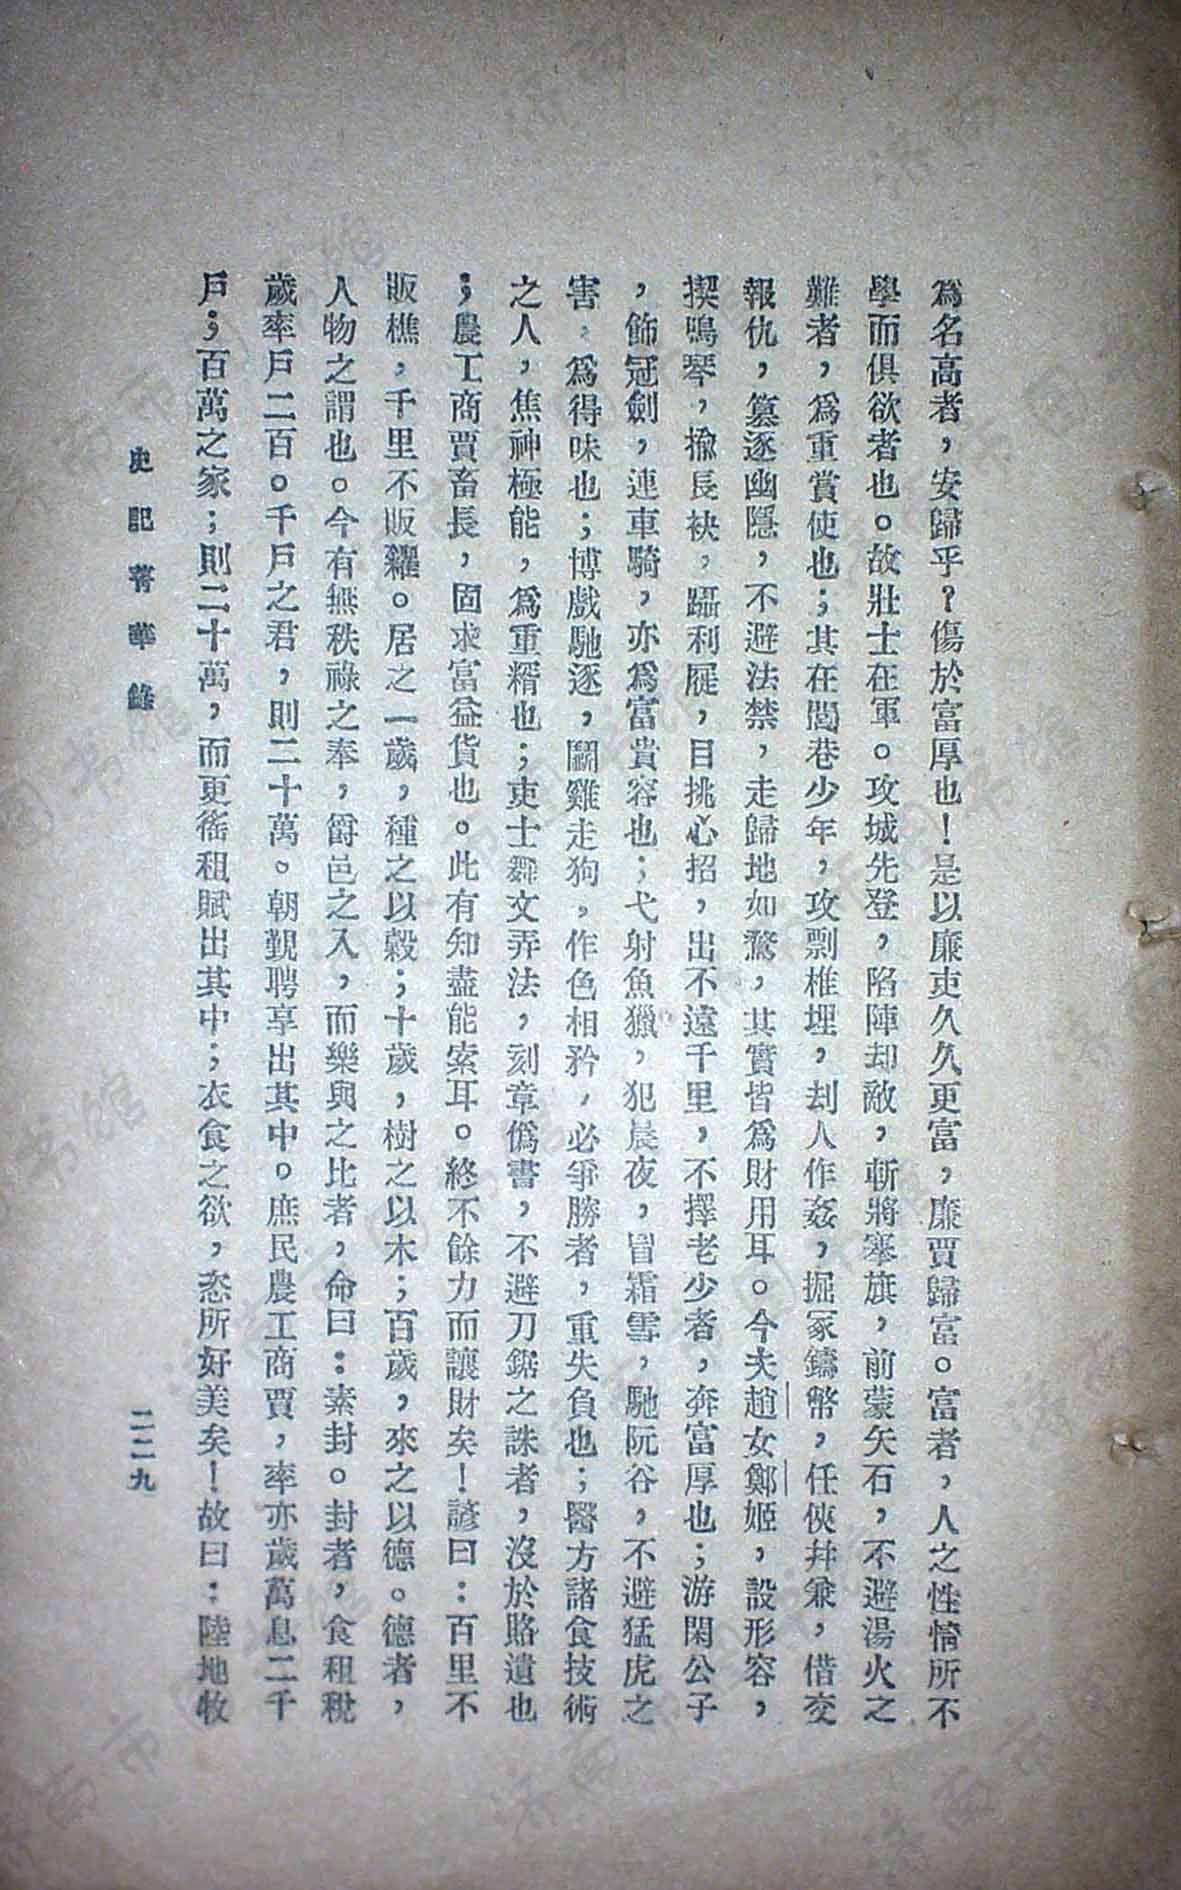 爲名高者，安歸乎？傷於富厚也！是以廉吏久久更富，廉賈歸富。富者，人之性情所不
學而俱欲者也。故壯士在軍。攻城先登，陷陣却敵，斬將搴旗，前蒙矢石，不避湯火之
難者，爲重賞使也；其在閭巷少年，攻剽椎埋，刦人作姦，掘冢鑄幣，任俠幷兼，借交
報仇，篡逐幽隱，不避法禁，走歸地如騖，其實皆爲財用耳。今夫趙女鄭姬，設形容，
揳鳴琴，揄長袂，躡利屣，目挑心招，出不遠千里，不擇老少者，奔富厚也；游閑公子
，飾冠劍，連車騎，亦爲富貴容也；弋射魚獵，犯晨夜，冒霜雪，馳阬谷，不避猛虎之
害，爲得味也；博戲馳逐，鬭雞走狗，作色相矜，必爭勝者，重失負也；醫方諸食技術
之人，焦神極能，爲重糈也；吏士舞文弄法，刻章僞書，不避刀鋸之誅者，沒於賂遺也
；農工商賈畜長，固求富益貨也。此有知盡能索耳。終不餘力而讓財矣！諺曰：百里不
販樵，千里不販糴。居之一歲，種之以穀；十歲，樹之以木；百歲，來之以德。德者，
人物之謂也。今有無秩祿之奉，爵邑之入，而樂與之比者，命曰：素封。封者，食租稅
歲率戶二百。千戶之君，則二十萬。朝覲聘享出其中。庶民農工商賈，率亦歲萬息二千
戶；百萬之家；則二十萬，而更徭租賦出其中；衣食之欲，恣所好美矣！故曰：陸地牧
史記菁華錄
二二九